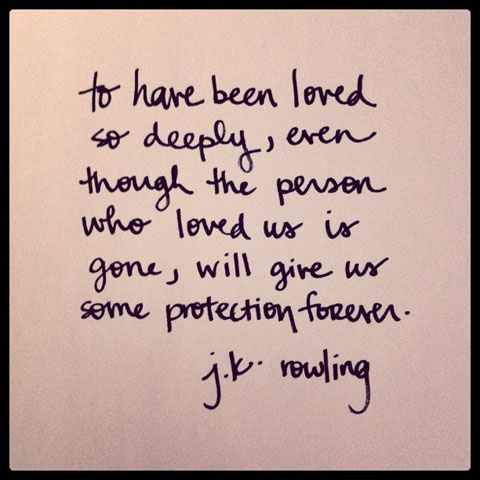 to have been loved
so deeply, even
though the person
who loved us is
gone, will give us
some protection forever.
j.k. rowling